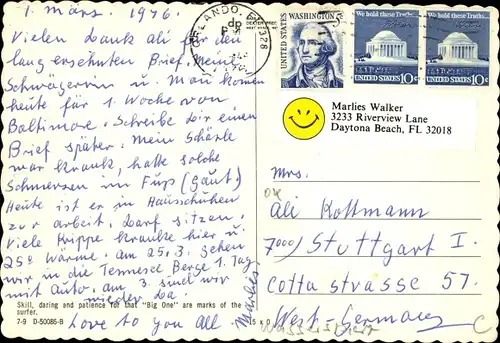 1. März. 1976.
Vielen Dank Ali für den
lang ersehnten Brief. Meine
Schwägerin u. Man komen
heute für 1. Woche von
Baltimore. Schreibe Dir einen
Brief später. Mein Schätzle
war krank, hatte solche
Schmerzen im Fuß (Gaut)
Heute ist er in Hausschuhen
zur arbeit. Darf sitzen.
Viele Krippe kranke hier u
25° Wärme. Am 25.3. gehen
wir in die Tennesee Berge 1. Tag
mit Auto. am 3. sind wir
wieder da.
Love to you All
Marlies
Skill, daring and patience for that "Big One" are marks of the
surfer.
7-9 D-50086-B
ORLANDO, FL 328
UNITED STATES
WASHINGTON
We hold these Truths...
10c
UNITED STATES
We hold these Truths...
10c
UNITED STATES
Marlies Walker
3233 Riverview Lane
Daytona Beach, FL 32018
Mrs.
Ali Kottmann
7000 Stuttgart 1.
Cotta strasse 57.
West-Germany
C